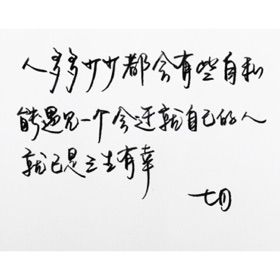 人多多少少都会有些自私
能遇见一个会迁就自己的人
就已是三生有幸
七月